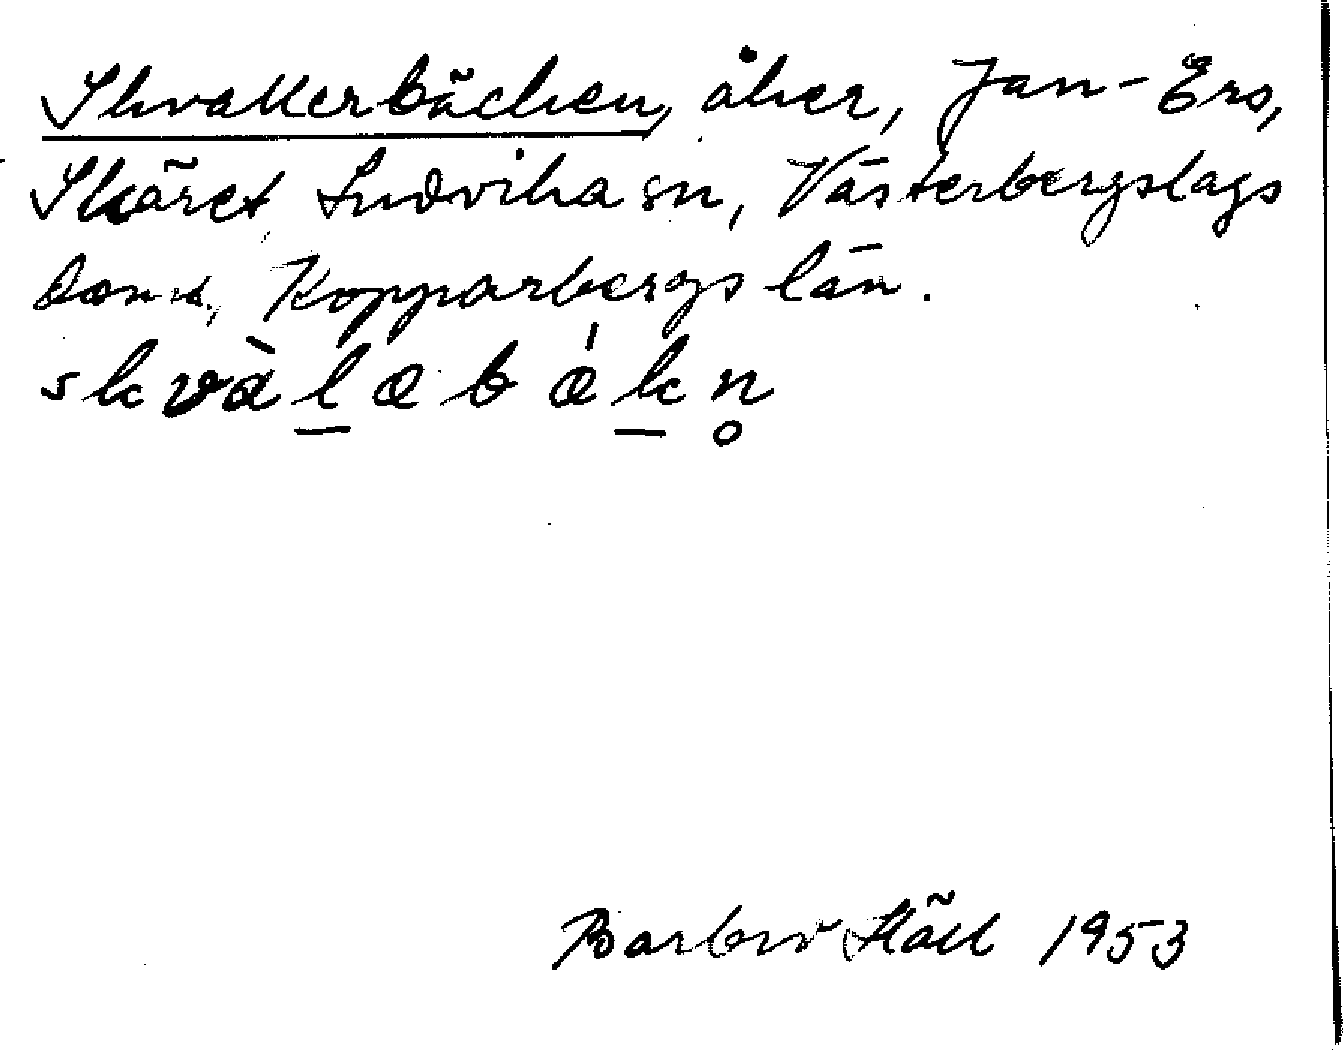 Skvallerbäcken, åker, Jan-Ers,
Skäret, Ludvika sn, Västerbergslags
doms., Kopparbergs län.
skvàl̲æbǽk̲n̥
Barbro Häll 1953